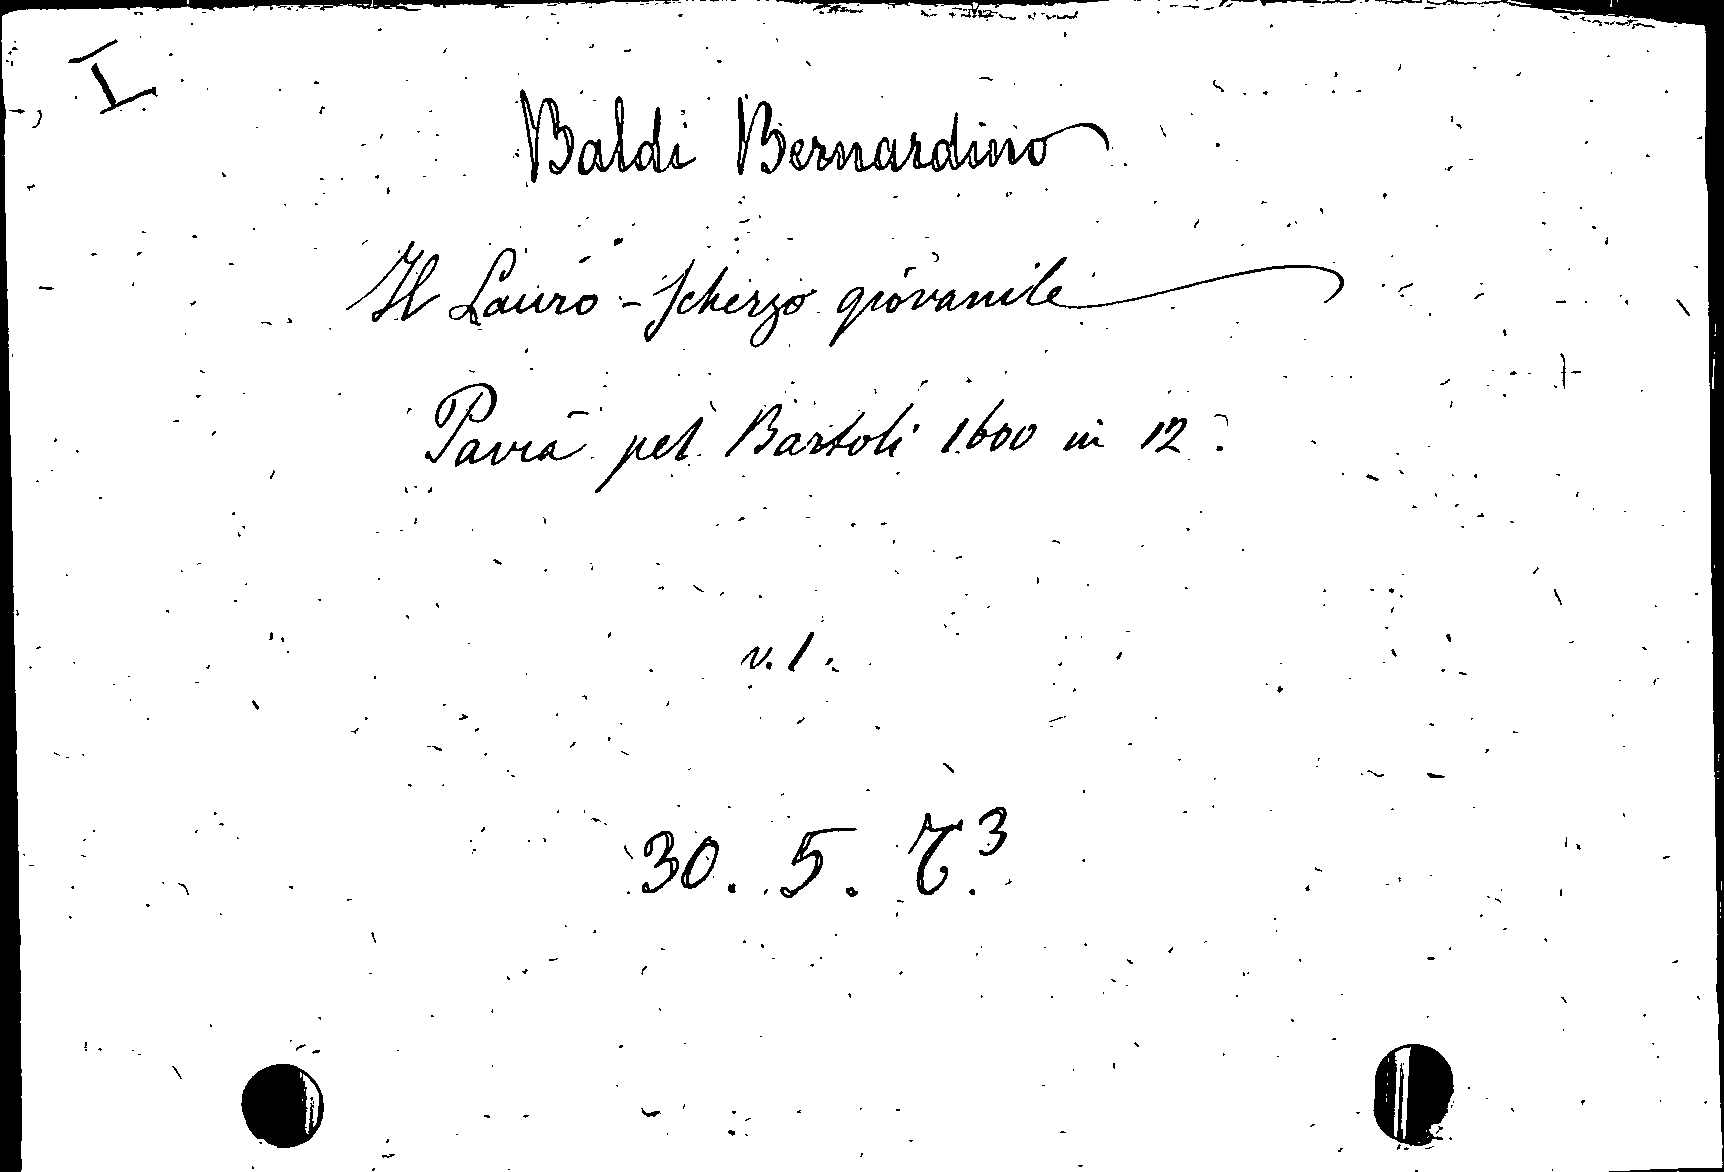 I
Baldi Bernardino
Il Lauro - Scherzo giovanile
Pavia pel Bartoli 1600 in 12.
v. 1.
30. 5. 7.³